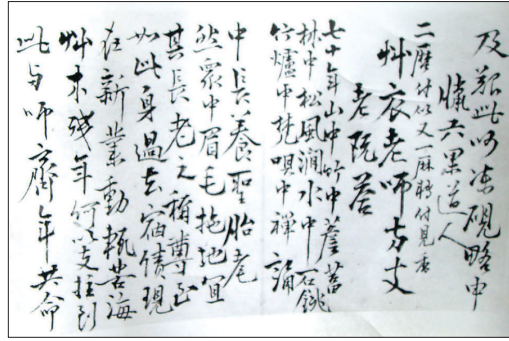 及艱此呵凍硯略申
臘六 果道人
二曆付似又一麻 付見香
艸衣老師 方丈
老阮 荅
七十年山中竹中薝蔔
林中松風澗水中石銚
竹爐中梵唄中禪誦
中長養聖胎老
然衆中眉毛拖地宜
其長老之稱尊至
如此身過去宿債現
在新業動輒苦海
艸木殘年何以支拄到
此与師齊年共命